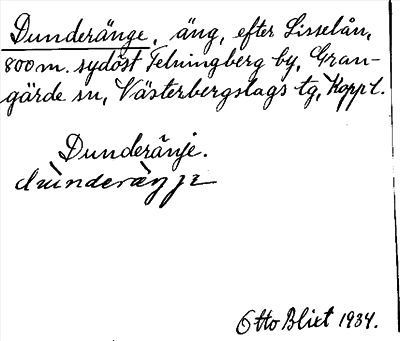 Dunderänge, äng, efter Lisselån,
800 m. sydöst Telningberg by, Gran-
gärde sn, Västerbergslags tg, Koppl.
Dunderänje.
Otto Blixt 1934.